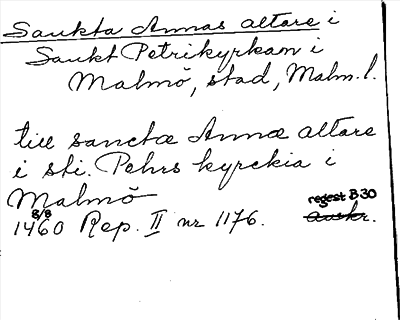 Sankta Annas altare i
Sankt Petrikyrkan i
Malmö, stad, Malm. l.
till sanctæ Annæ altare
i sti. Pehrs kyrckia i
Malmö
8/8
1460 Rep. II nr 1176.
regest B 30
avskr.